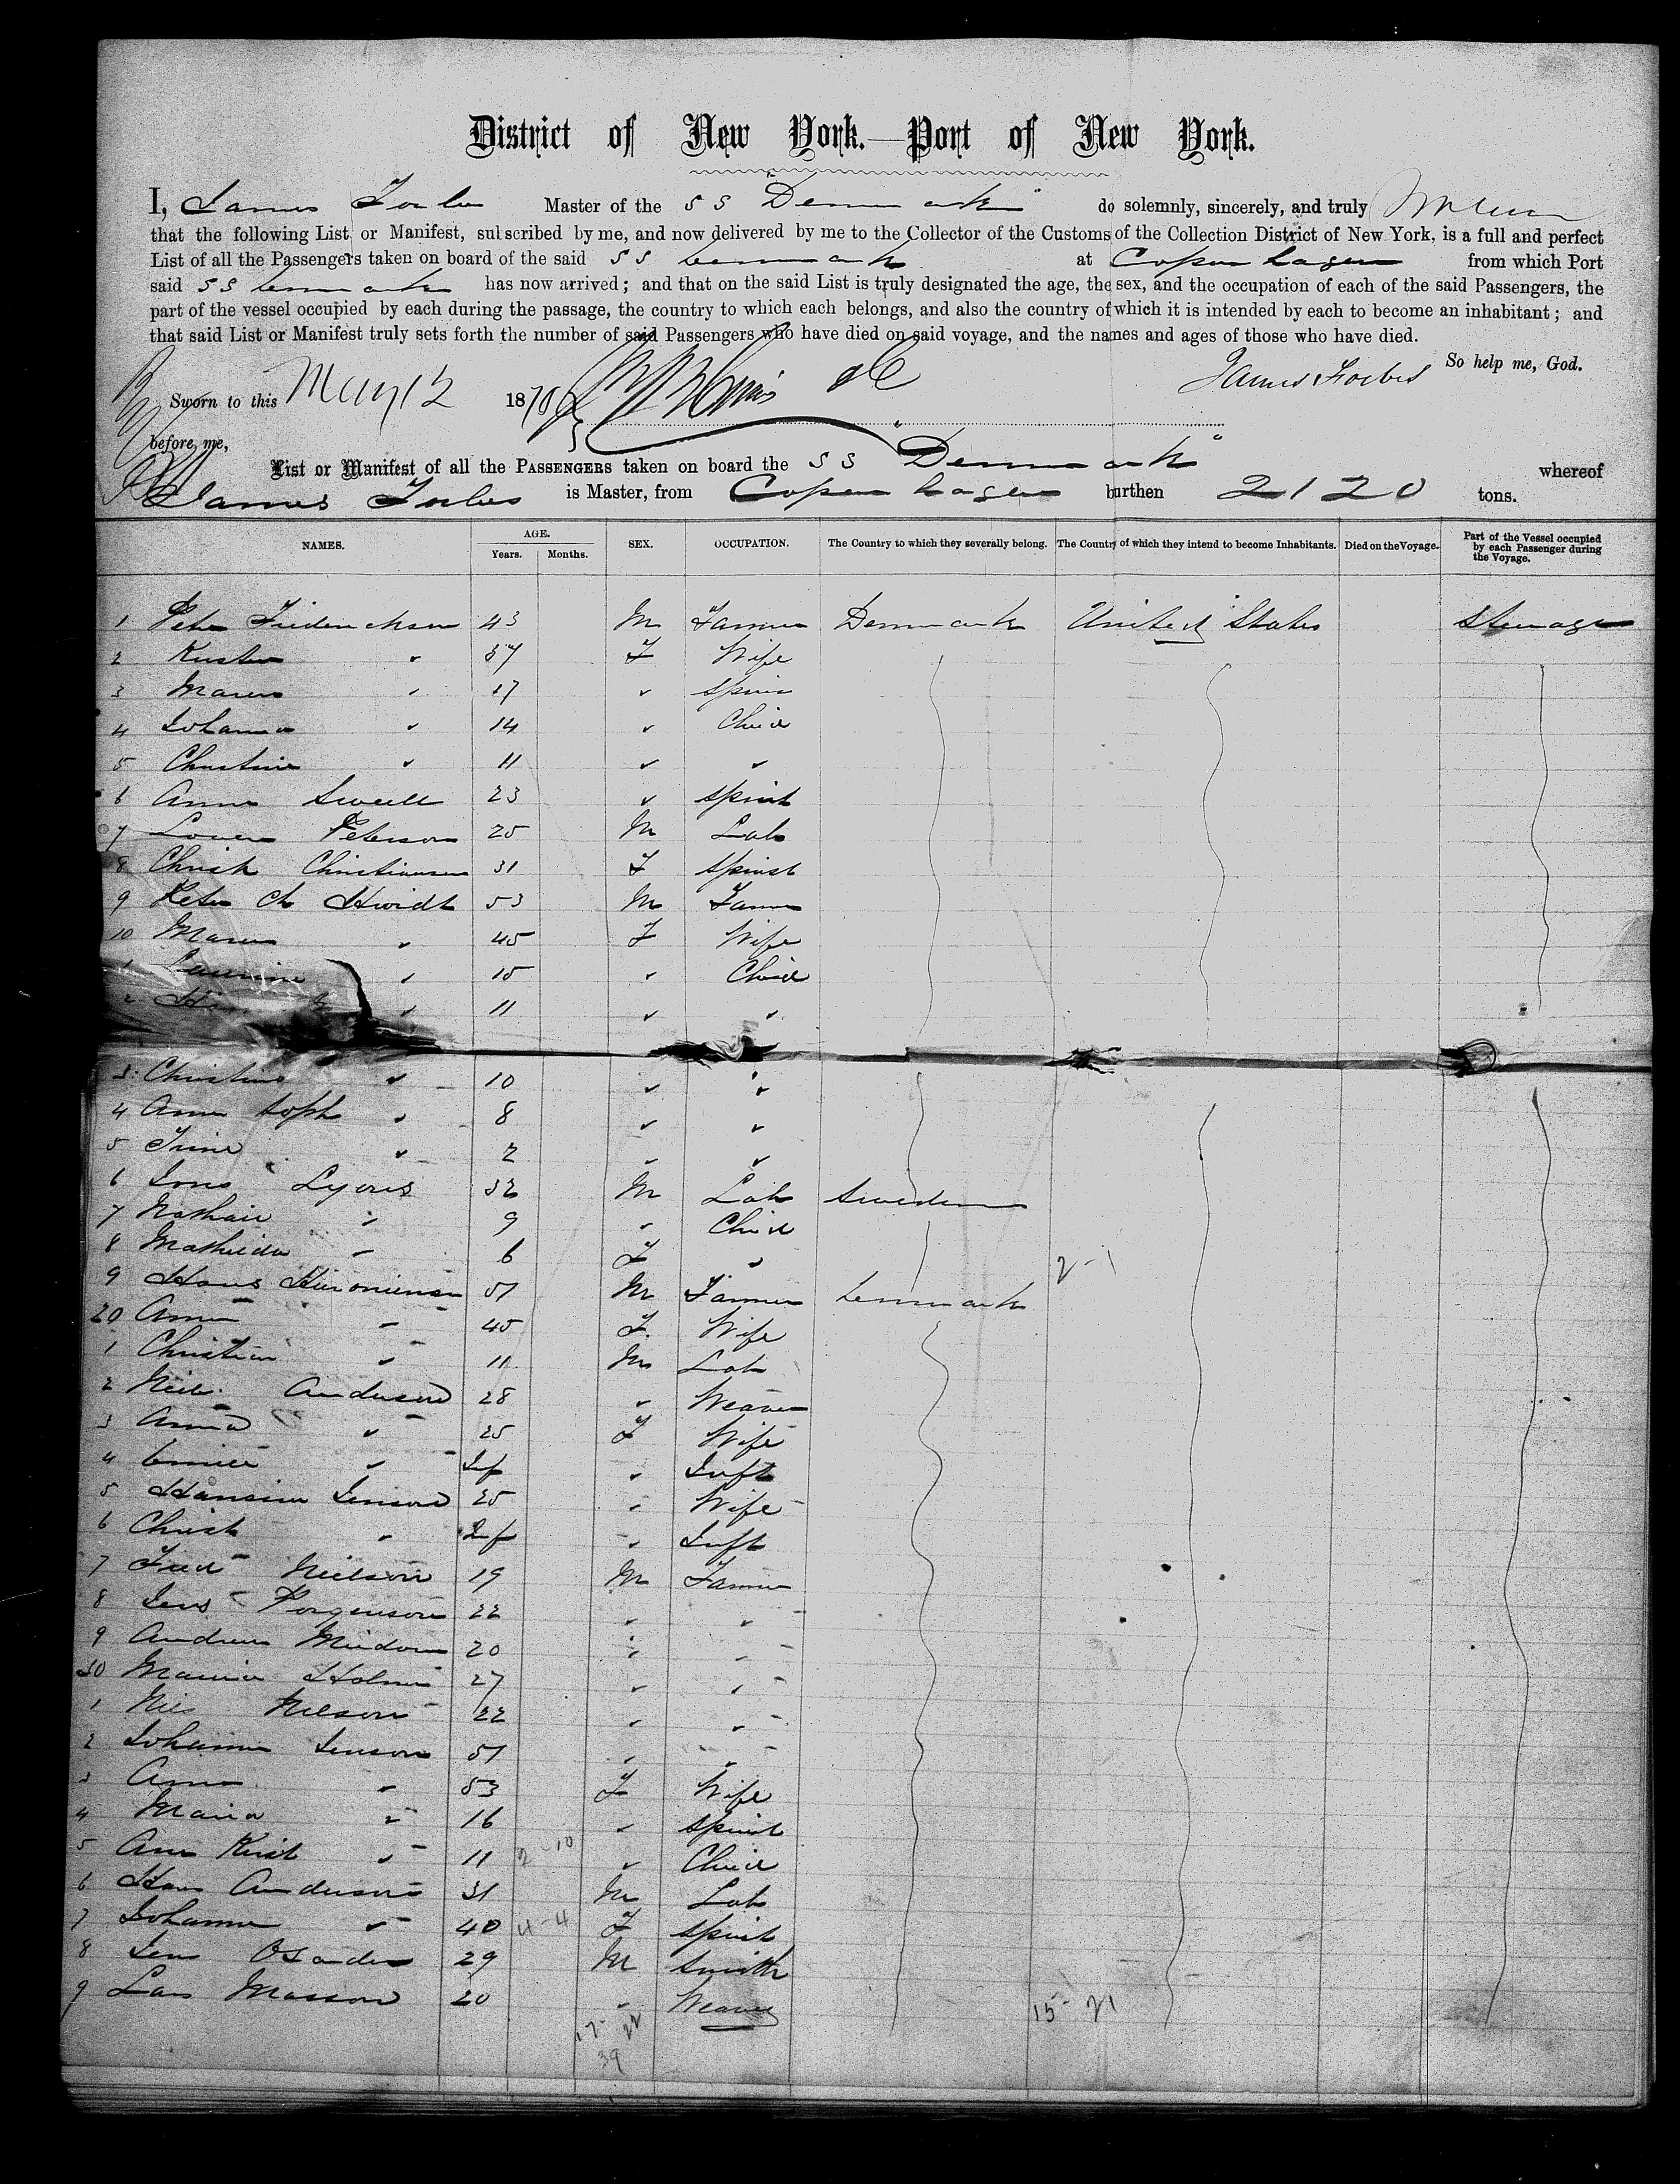 District of New York.—Port of New York.
I, James Forbes Master of the S S "Denmark" do solemnly, sincerely, and truly
that the following List or Manifest, subscribed by me, and now delivered by me to the Collector of the Customs of the Collection District of New York, is a full and perfect
List of all the Passengers taken on board of the said S S Denmark at Copenhagen from which Port
said S S Denmark has now arrived; and that on the said List is truly designated the age, the sex, and the occupation of each of the said Passengers, the
part of the vessel occupied by each during the passage, the country to which each belongs, and also the country of which it is intended by each to become an inhabitant; and
that said List or Manifest truly sets forth the number of said Passengers who have died on said voyage, and the names and ages of those who have died.
So help me, God.
James Forbes
Sworn to this May 12 1870
before me,
List or Manifest of all the PASSENGERS taken on board the S S "Denmark" whereof
James Forbes is Master, from Copenhagen burthen 2120 tons.
NAMES. AGE. Years. Months. SEX. OCCUPATION. The Country to which they severally belong. The Country of which they intend to become Inhabitants. Died on the Voyage. Part of the Vessel occupied by each Passenger during the Voyage.
1 Peter Friderichsen 43 M Farmer Denmark United States Steerage
2 " 37 F Wife
3 Maren " 17 " Spins
4 Johanna " 14 " Child
5 Christine " 11 " "
6 Anna 23 " Spinst
7 Peterson 25 M Lab
8 Christ Christiansen 31 F Spinst
9 Peter Ch Hwidt 53 M Farmer
10 Maren " 45 F Wife
1 Laurine " 15 " Child
2 " 11 " "
3 " 10 " "
4 Ann Soph " 8 " "
5 Trine " 2 " "
6 Jons 32 M Lab Sweden
7 " 9 " Child
8 Mathilda " 6 F "
9 Hans 51 M Farmer Denmark
20 Anna " 45 F Wife
1 Christian " 11 M Lab
2 Niels Anderson 28 " Weaver
3 Anna " 25 F Wife
4 " Inf " Inft
5 Hansine Jenson 25 " Wife
6 Christ " Inf " Inft
7 Fred Nielson 19 M Farmer
8 Jens 22 " "
9 20 " "
30 Holmes 27 " "
1 Niels Nelson 22 " "
2 Johannes Jenson 51 " "
3 Anna " 53 F Wife
4 Maria " 16 " Spinst
5 Ann Kirst " 11 2-10 " Child
6 Hans Anderson 31 M Lab
7 Johanna " 40 4-4 F Spinst
8 Jens 29 M Smith
9 Lars Masson 20 " Weaver
2-1
15-21
17-22
39